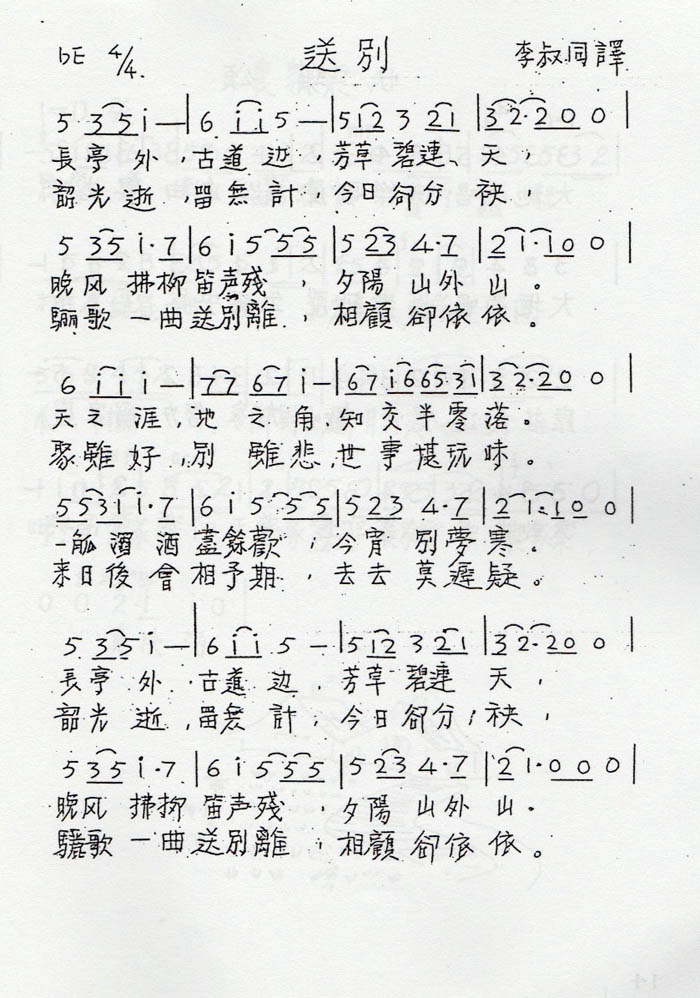 bE 4/4. 送別 李叔同譯
5 35 i — | 6 i i 5 — | 5 i2 3 2i | 3 2·2 0 0 |
長亭 外，古道 边，芳草 碧連、天，
韶光 逝，畱無 計，今日 卻分 袂，
5 35 i·7 | 6 i 5 5 5 | 5 23 4·7 | 2 i·i 0 0 |
晚风 拂柳 笛声残 ，夕陽 山外 山。
骊歌 一曲 送別離 ，相顧 卻依 依。
6 i i i — | 77 67 i — | 67 i6 65·3i | 3 2·2 0 0 |
天 之 涯，地 之 角 知 交 半 零 落。
聚 雖 好，別 雖 悲，世 事 堪 玩 味。
5 5 3 i i·7 | 6 i 5 5 5 | 5 23 4·7 | 2 i·i 0 0 |
一觚 濁 酒 盡餘歡 ，今宵 別夢 寒。
来日 後 會 相予期 ，去去 莫遲 疑。
5 35 i — | 6 i i 5 — | 5 i2 3 2i | 3 2·2 0 0 |
長亭 外，古道 边，芳草 碧連 天，
韶光 逝，畱無 計，今日 卻分，袂，
5 35 i·7 | 6 i 5 5 5 | 5 23 4·7 | 2 i·0 0 0 |
晚风 拂柳 笛声残 ，夕陽 山外 山。
骊歌 一曲 送別離 ，相顧 卻依 依。